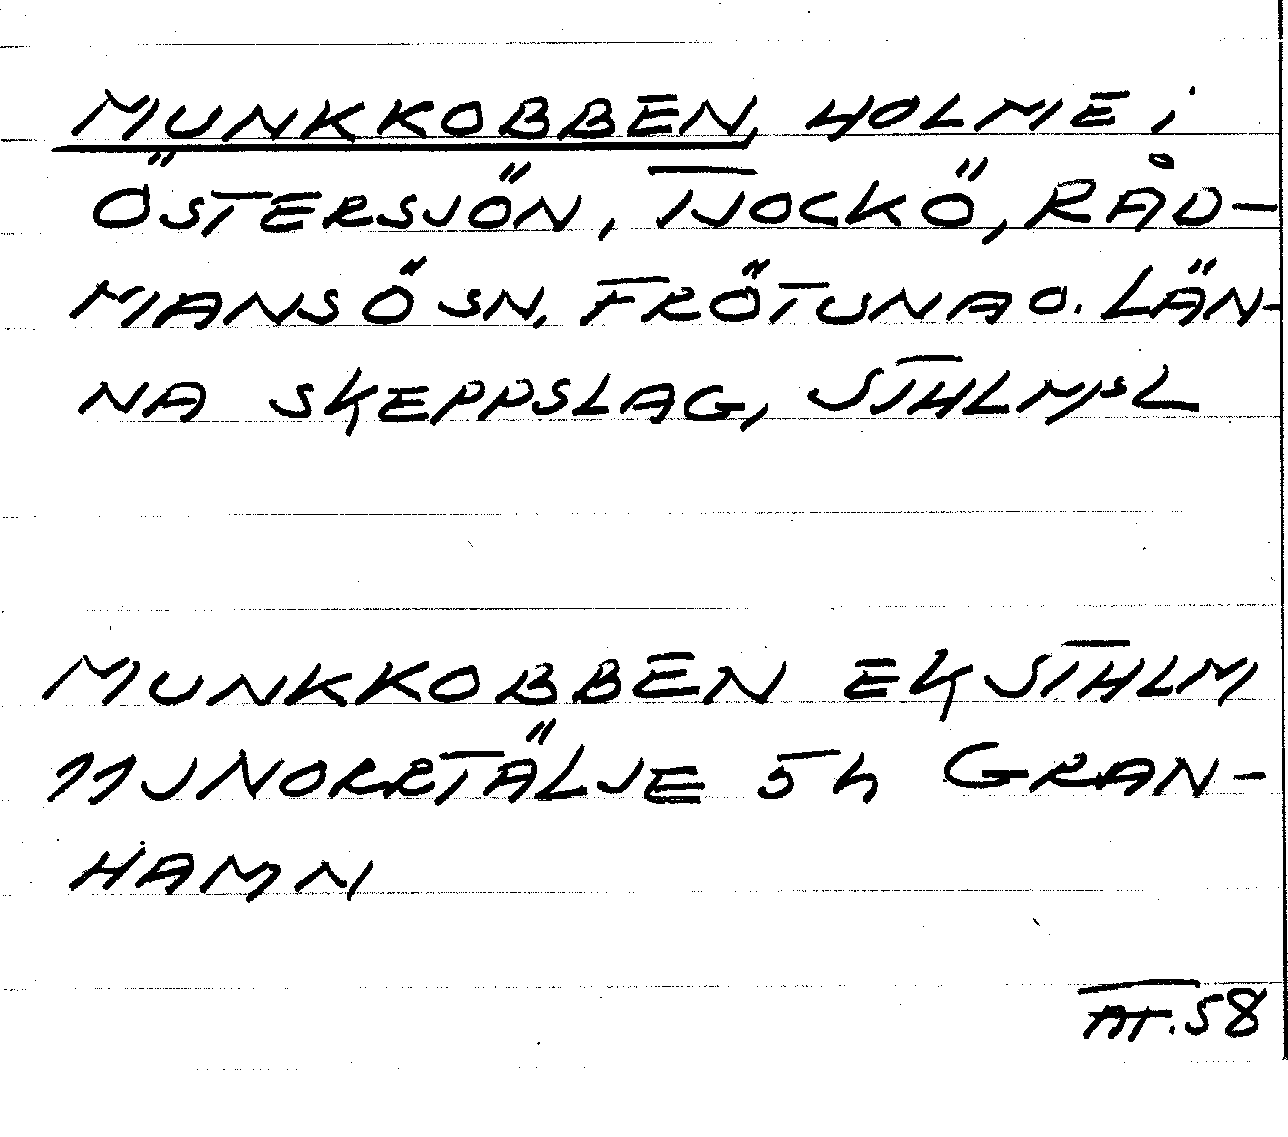 MUNKKOBBEN, HOLME i
ÖSTERSJÖN, TJOCKÖ, RÅD-
MANSÖ SN, FRÖTUNA O. LÄN-
NA SKEPPSLAG, STHLMSL
MUNKKOBBEN EKSTHLM
11J NORRTÄLJE 5h GRAN-
HAMN
AT. 58